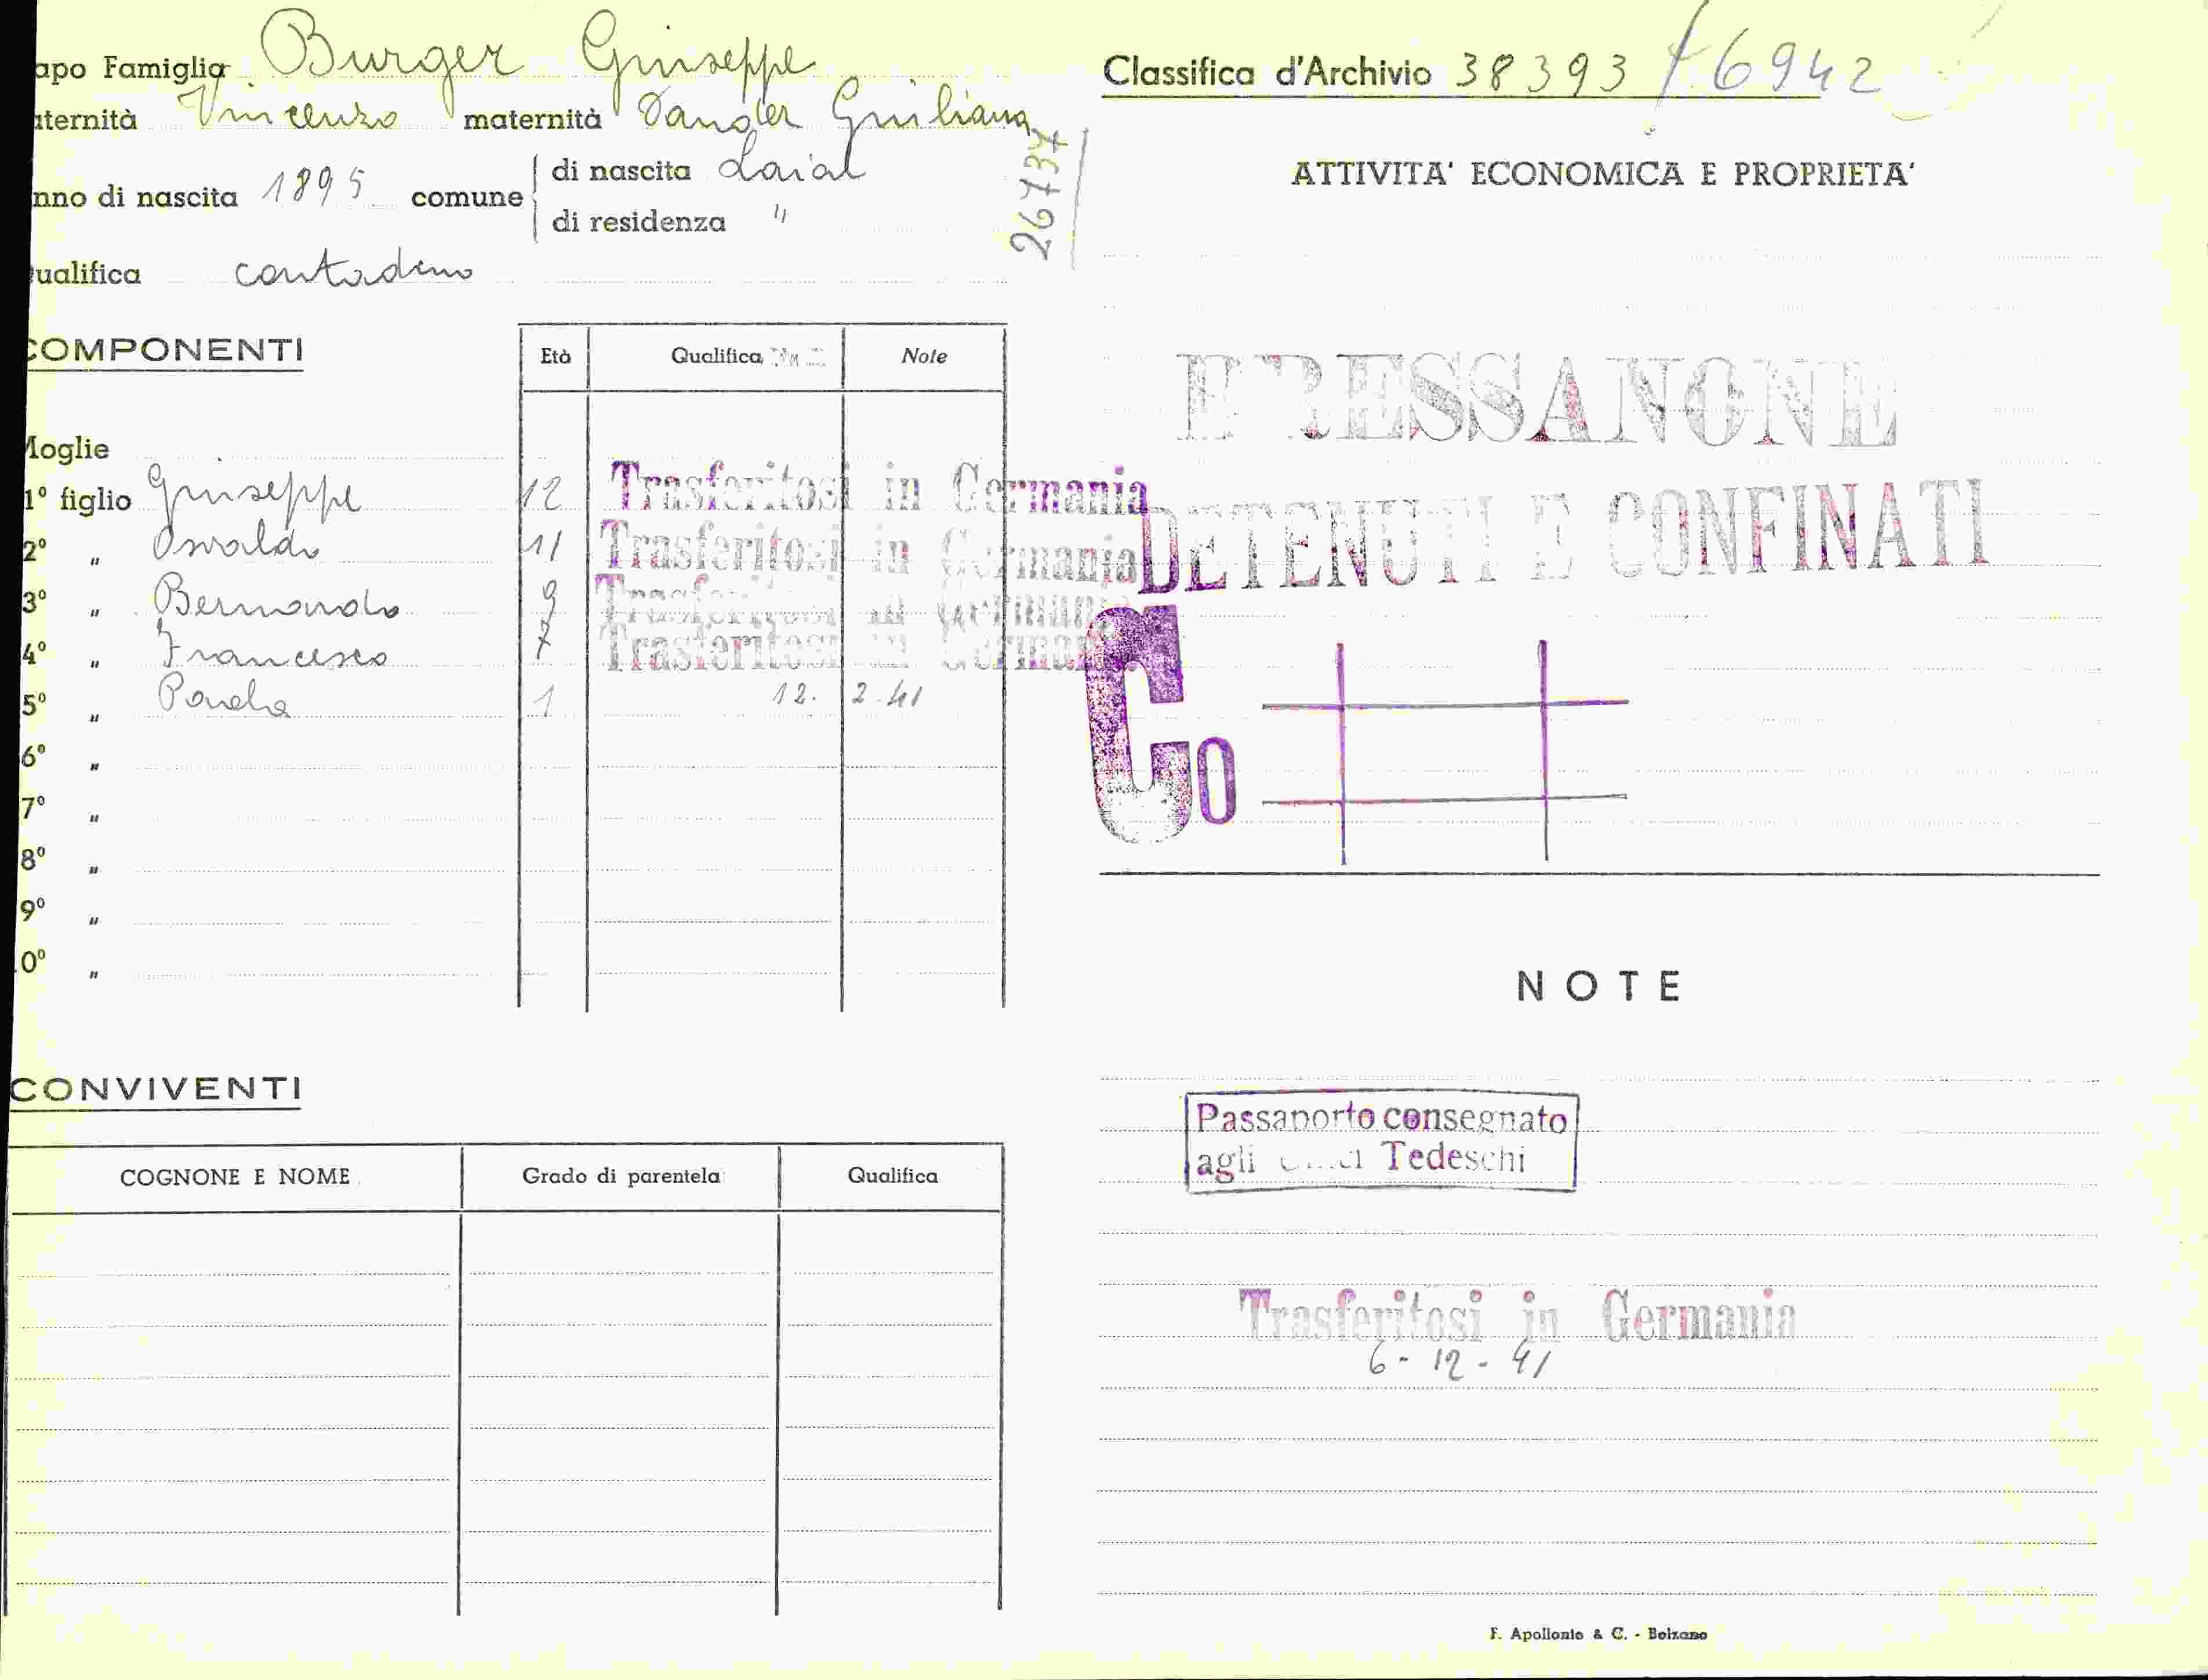 apo Famiglia Burger Giuseppe
aternità Vincenzo maternità Vander Giuliana
nno di nascita 1895 comune di nascita Laial
di residenza "
ualifica contadino
26737
COMPONENTI
Età Qualifica Note
Moglie
1° figlio Giuseppe 12 Trasferitosi in Germania
2° " Osvaldo 11 Trasferitosi in Germania
3° " Bernardo 9 Trasferitosi in Germania
4° " Francesco 7 Trasferitosi in Germania
5° " 1 12. 2-41
6° "
7° "
8° "
9° "
0° "
CONVIVENTI
COGNONE E NOME Grado di parentela Qualifica
Classifica d'Archivio 38393 / 6942
ATTIVITA' ECONOMICA E PROPRIETA'
BRESSANONE
DETENUTI E CONFINATI
Co
NOTE
Passaporto consegnato
agli Tedeschi
Trasferitosi in Germania
6-12-41
F. Apollonio & C. - Bolzano